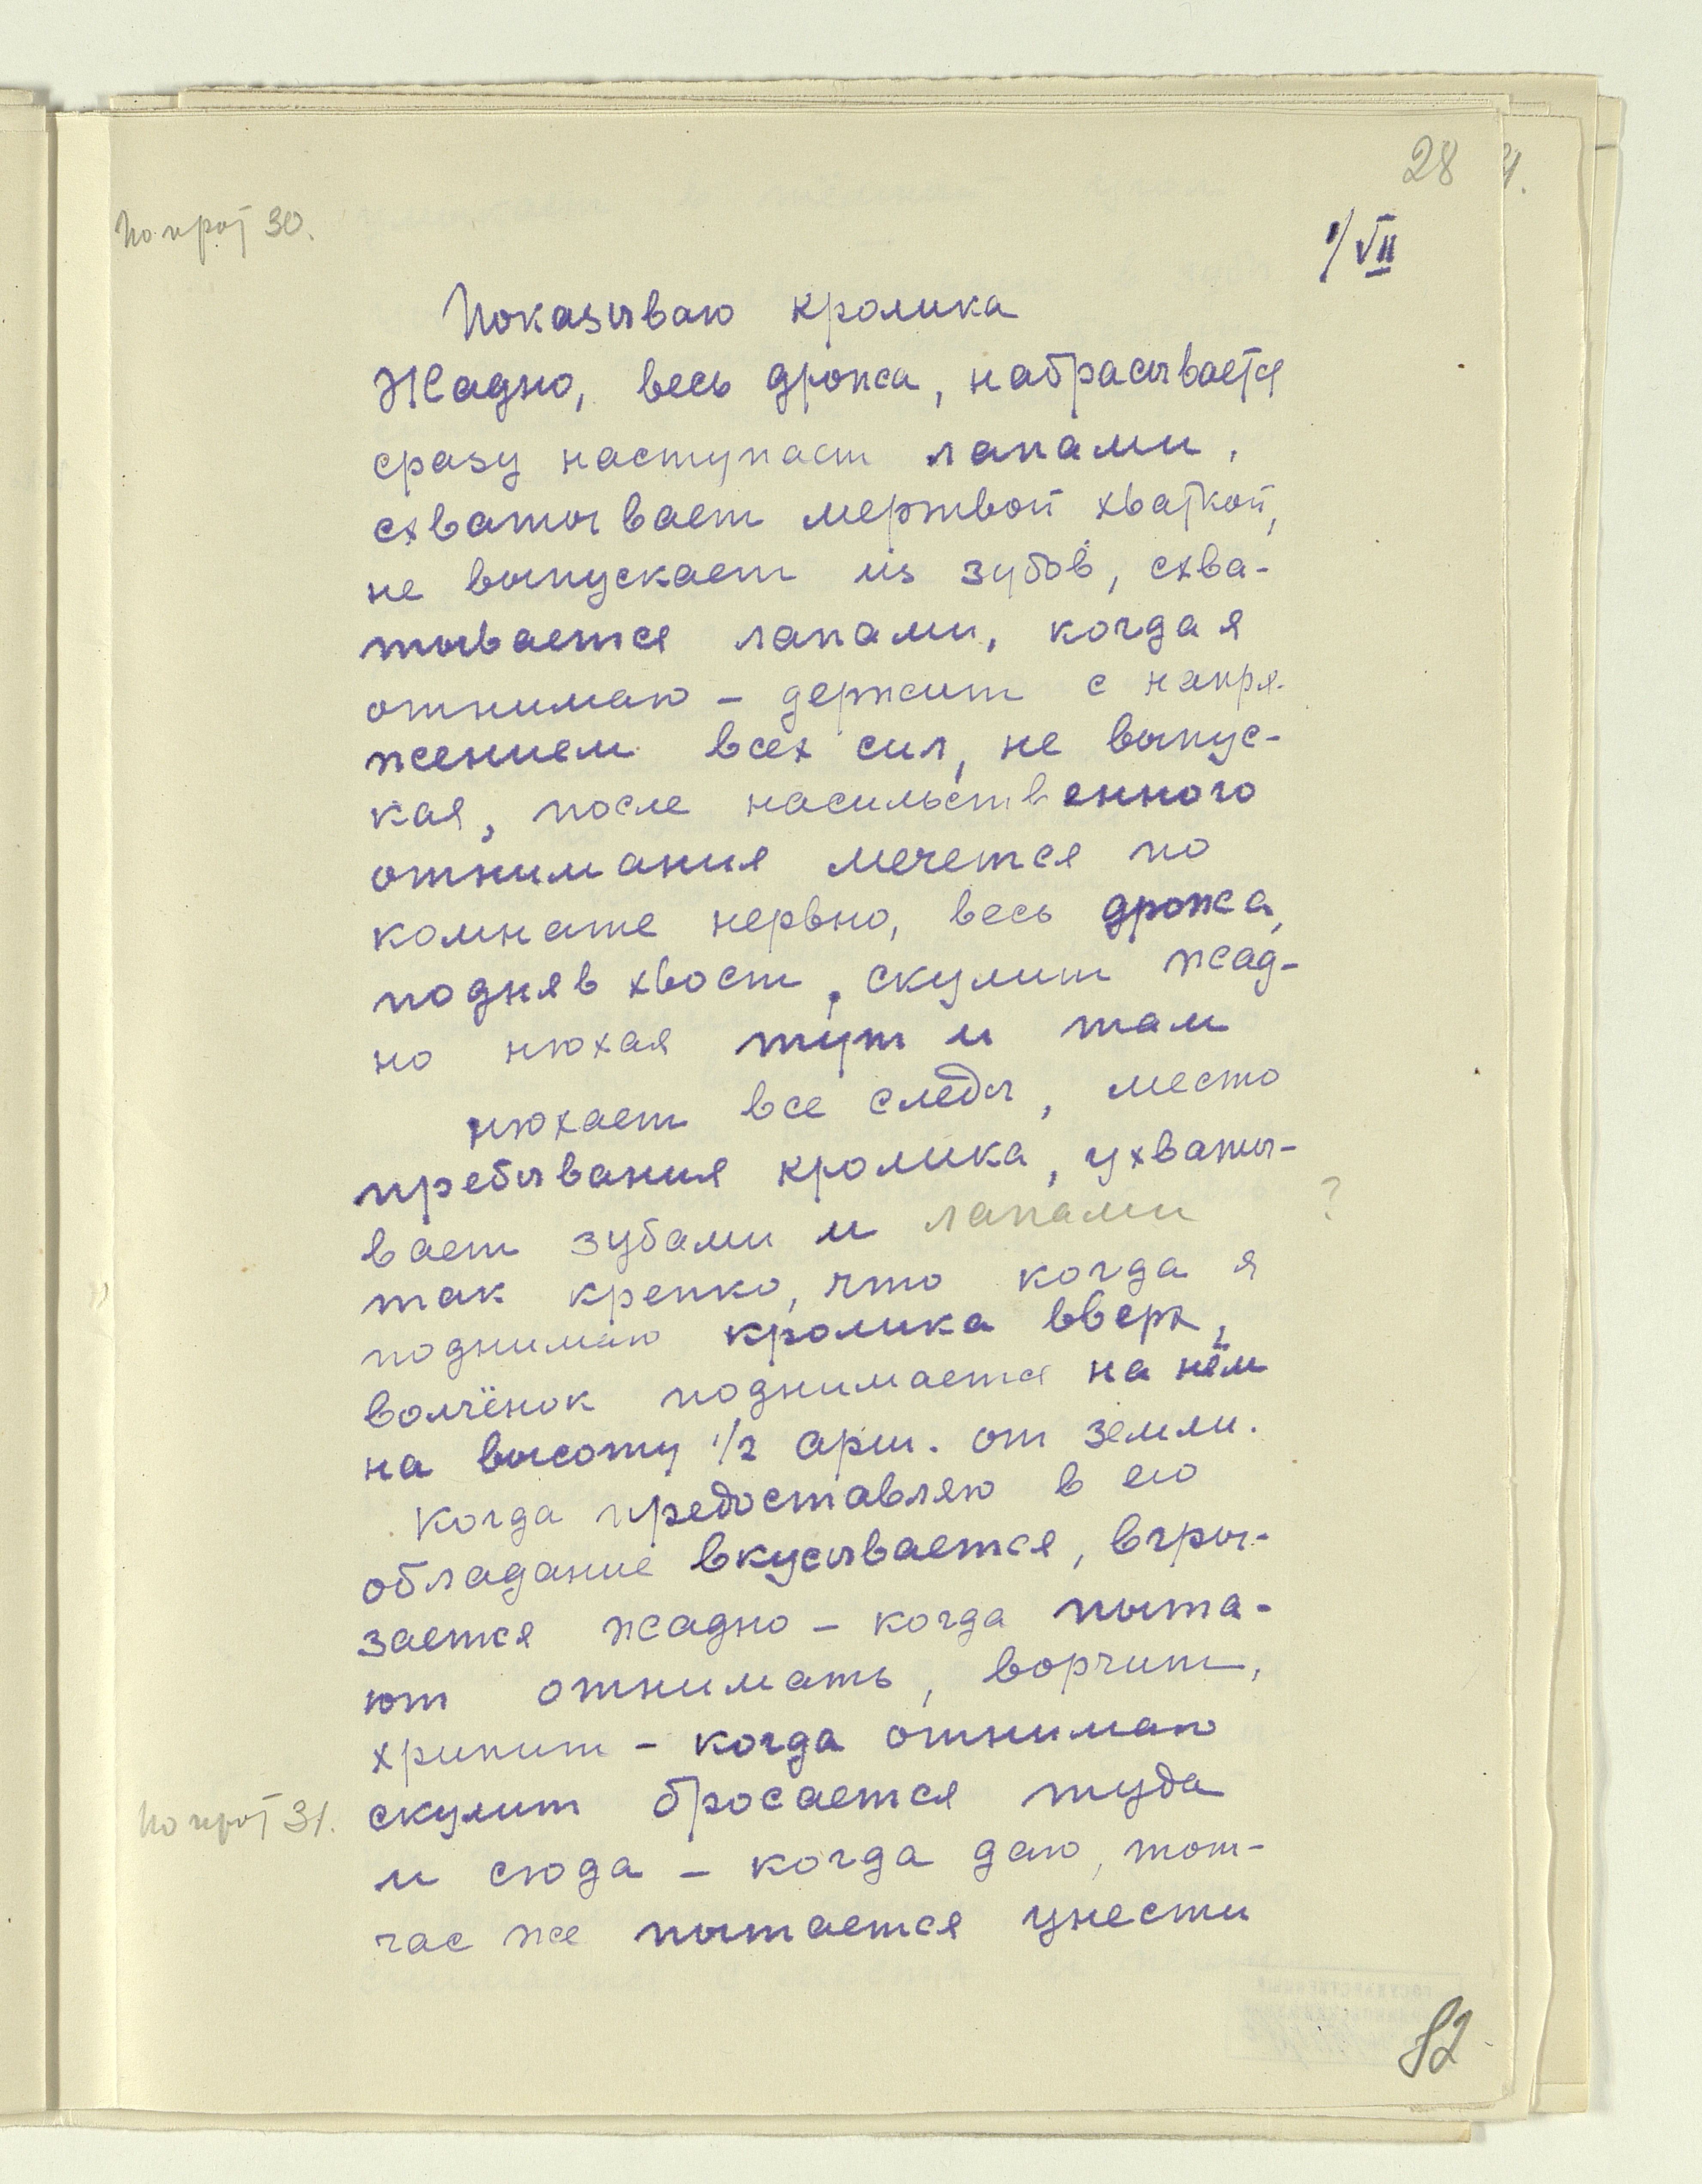 28
По прот 30.
1/VII
Показываю кролика
Жадно, весь дрожа, набрасывается
сразу наступает лапами,
схватывает мертвой хваткой,
не выпускает из зубов, схва-
тывается лапами, когда я
отнимаю – держит с напря-
жением всех сил, не выпус-
кая, после насильственного
отнимания мечется по
комнате нервно, весь дрожа,
подняв хвост, скулит жад-
но нюхая тут и там
нюхает все следы, место
пребывания кролика, ухваты-
вает зубами и лапами ?
так крепко, что когда я
поднимаю кролика вверх,
волчёнок поднимается на нём
на высоту 1/2 арш. от земли.
Когда предоставляю в его
обладание вкусывается, вгры-
зается жадно – когда пыта-
ют отнимать, ворчит,
хрипит – когда отнимаю
скулит бросается туда
По прот 31.
и сюда – когда даю, тот-
час же пытается унести
82